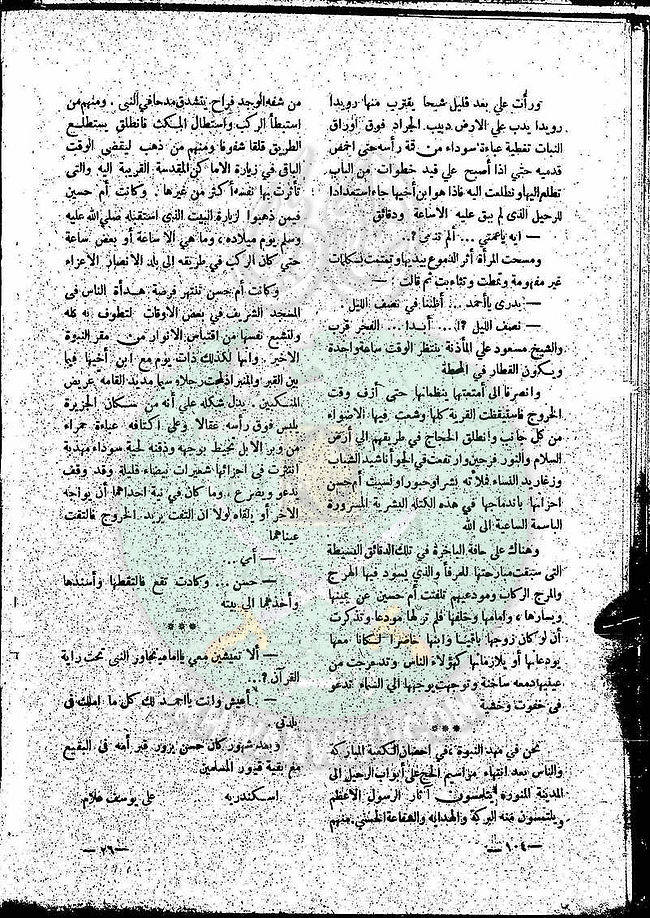 ورأت علي بعد قليل شبحا يقترب منها رويدا
رويدا يدب علي الارض دبيب الجراد فوق أوراق
النبات تغطيه عباءة سوداء من قمة رأسه حتى اخمص
قدميه حتي اذا أصبح علي قيد خطوات من الباب
تطلع اليها وتطلعت اليه فاذا هو ابن أخيها جاء استعدادا
للرحيل الذى لم يبق عليه الا ساعة ودقائق
— ايه ياعمتي ... ألم تنمي ؟ ..
ومسحت المرأة أثر الدموع بيديها وتمتمت بكلمات
غير مفهومة وتمطت وتثاءبت ثم قالت : —
— بدرى يا أحمد ... أظننا في نصف الليل .
— نصف الليل ؟! ... أبدا ... الفجر قرب
والشيخ مسعود علي المأذنة ينتظر الوقت ساعة واحدة
ويكون القطار في المحطة
وانصرفا الى أمتعتها ينظمانها حتى أزف وقت
الخروج فاستيقظت القرية كلها وشعت فيها الاضواء
من كل جانب وانطلق الحجاج في طريقهم الى أرض
السلام والنور فرحين وارتفعت في الجو أناشيد الشباب
وزغاريد النساء فملأته بشرا وحبورا ونسيت أم حسن
احزانها باندماجها في هذه الكتلة البشرية المسرورة
الباسمة الساعية الى الله
وهناك على حافة الباخرة في تلك الدقائق البسيطة
التى سبقت مبارحتها للمرفأ والذي يسود فيها الهرج
والمرج الركاب ومودعيهم تلفتت أم حسين عن يمينها
ويسارها ، وأمامها وخلفها فلم تر لها مودعا وتذكرت
أن لو كان زوجها باقيا وابنها حاضرا لكانا معها
يودعانها أو يلازمانها كهؤلاء الناس وتدحرجت من
عينيها دمعة ساخنة وتوجهت بوجهها الى السماء تدعو
فى خفوت وخشية
***
نحن في مهد النبوة ، في احضان الكعبة المباركة
والناس بعد انتهاء مراسيم الحج علي أبواب الرحيل الى
المدينة المنورة يتلمسون آثار الرسول الاعظم
ويلتمسون منه البركة والهداية والشفاعة الحسنى منهم
— ١٠٤ —
من شفه الوجد فراح يتشدق مدحا في النبى . ومنهم من
استبطأ الركب واستطال المكث فانطلق يستطلع
الطريق قلقا شفوفا ومنهم من ذهب ليقضى الوقت
الباقى في زيارة الاماكن المقدسة القريبة اليه والتى
تأثرت بها نفسه أكثر من غيرها . وكانت أم حسين
فيمن ذهبوا لزيارة البيت الذى استقبله صلى الله عليه
وسلم يوم ميلاده ، وما هي الا ساعة أو بعض ساعة
حتي كان الركب في طريقه الى بلد الانصار الاعزاء
وكانت أم حسن تنتهز فرصة هدأة الناس فى
المسجد الشريف في بعض الاوقات لتطوف به كله
ولتشبع نفسها من اقتباس الانوار من مقر النبوة
الاخير . وانها لكذلك ذات يوم مع ابن أخيها فيما
بين القبر والمنبر إذ لمحت رجلا وسيما مديد القامة عريض
المنكبين . يدل شكله علي أنه من سكان الجزيرة
يلبس فوق رأسه عقالا وعلي أكتافه عباءة حمراء
من وبر الابل تحيط بوجهه وذقنه لحية سوداء مهدبة
انتثرت فى اجزائها شعيرات بيضاء قليلة وقد وقف
يدعو ويضرع . وما كان في نية احداهما أن يواجه
الآخر أو يلقاه لولا ان التفت يريد الخروج فالتقت
عيناهما
— أمى ...
— حسن ... وكادت تقع فالتقطها وأسندها
وأخذهما الى بيته
***
— ألا تعيشين معي يا أماه تجاور النبى تحت راية
القرآن ؟ ...
— أعيش وانت يا احمد لك كل ما املك فى
بلدتي .
وبعد شهور كان حسن يزور قبر أمه فى البقيع
مع بقية قبور المسلمين
اسكندرية على يوسف علام
— ٢٦ —